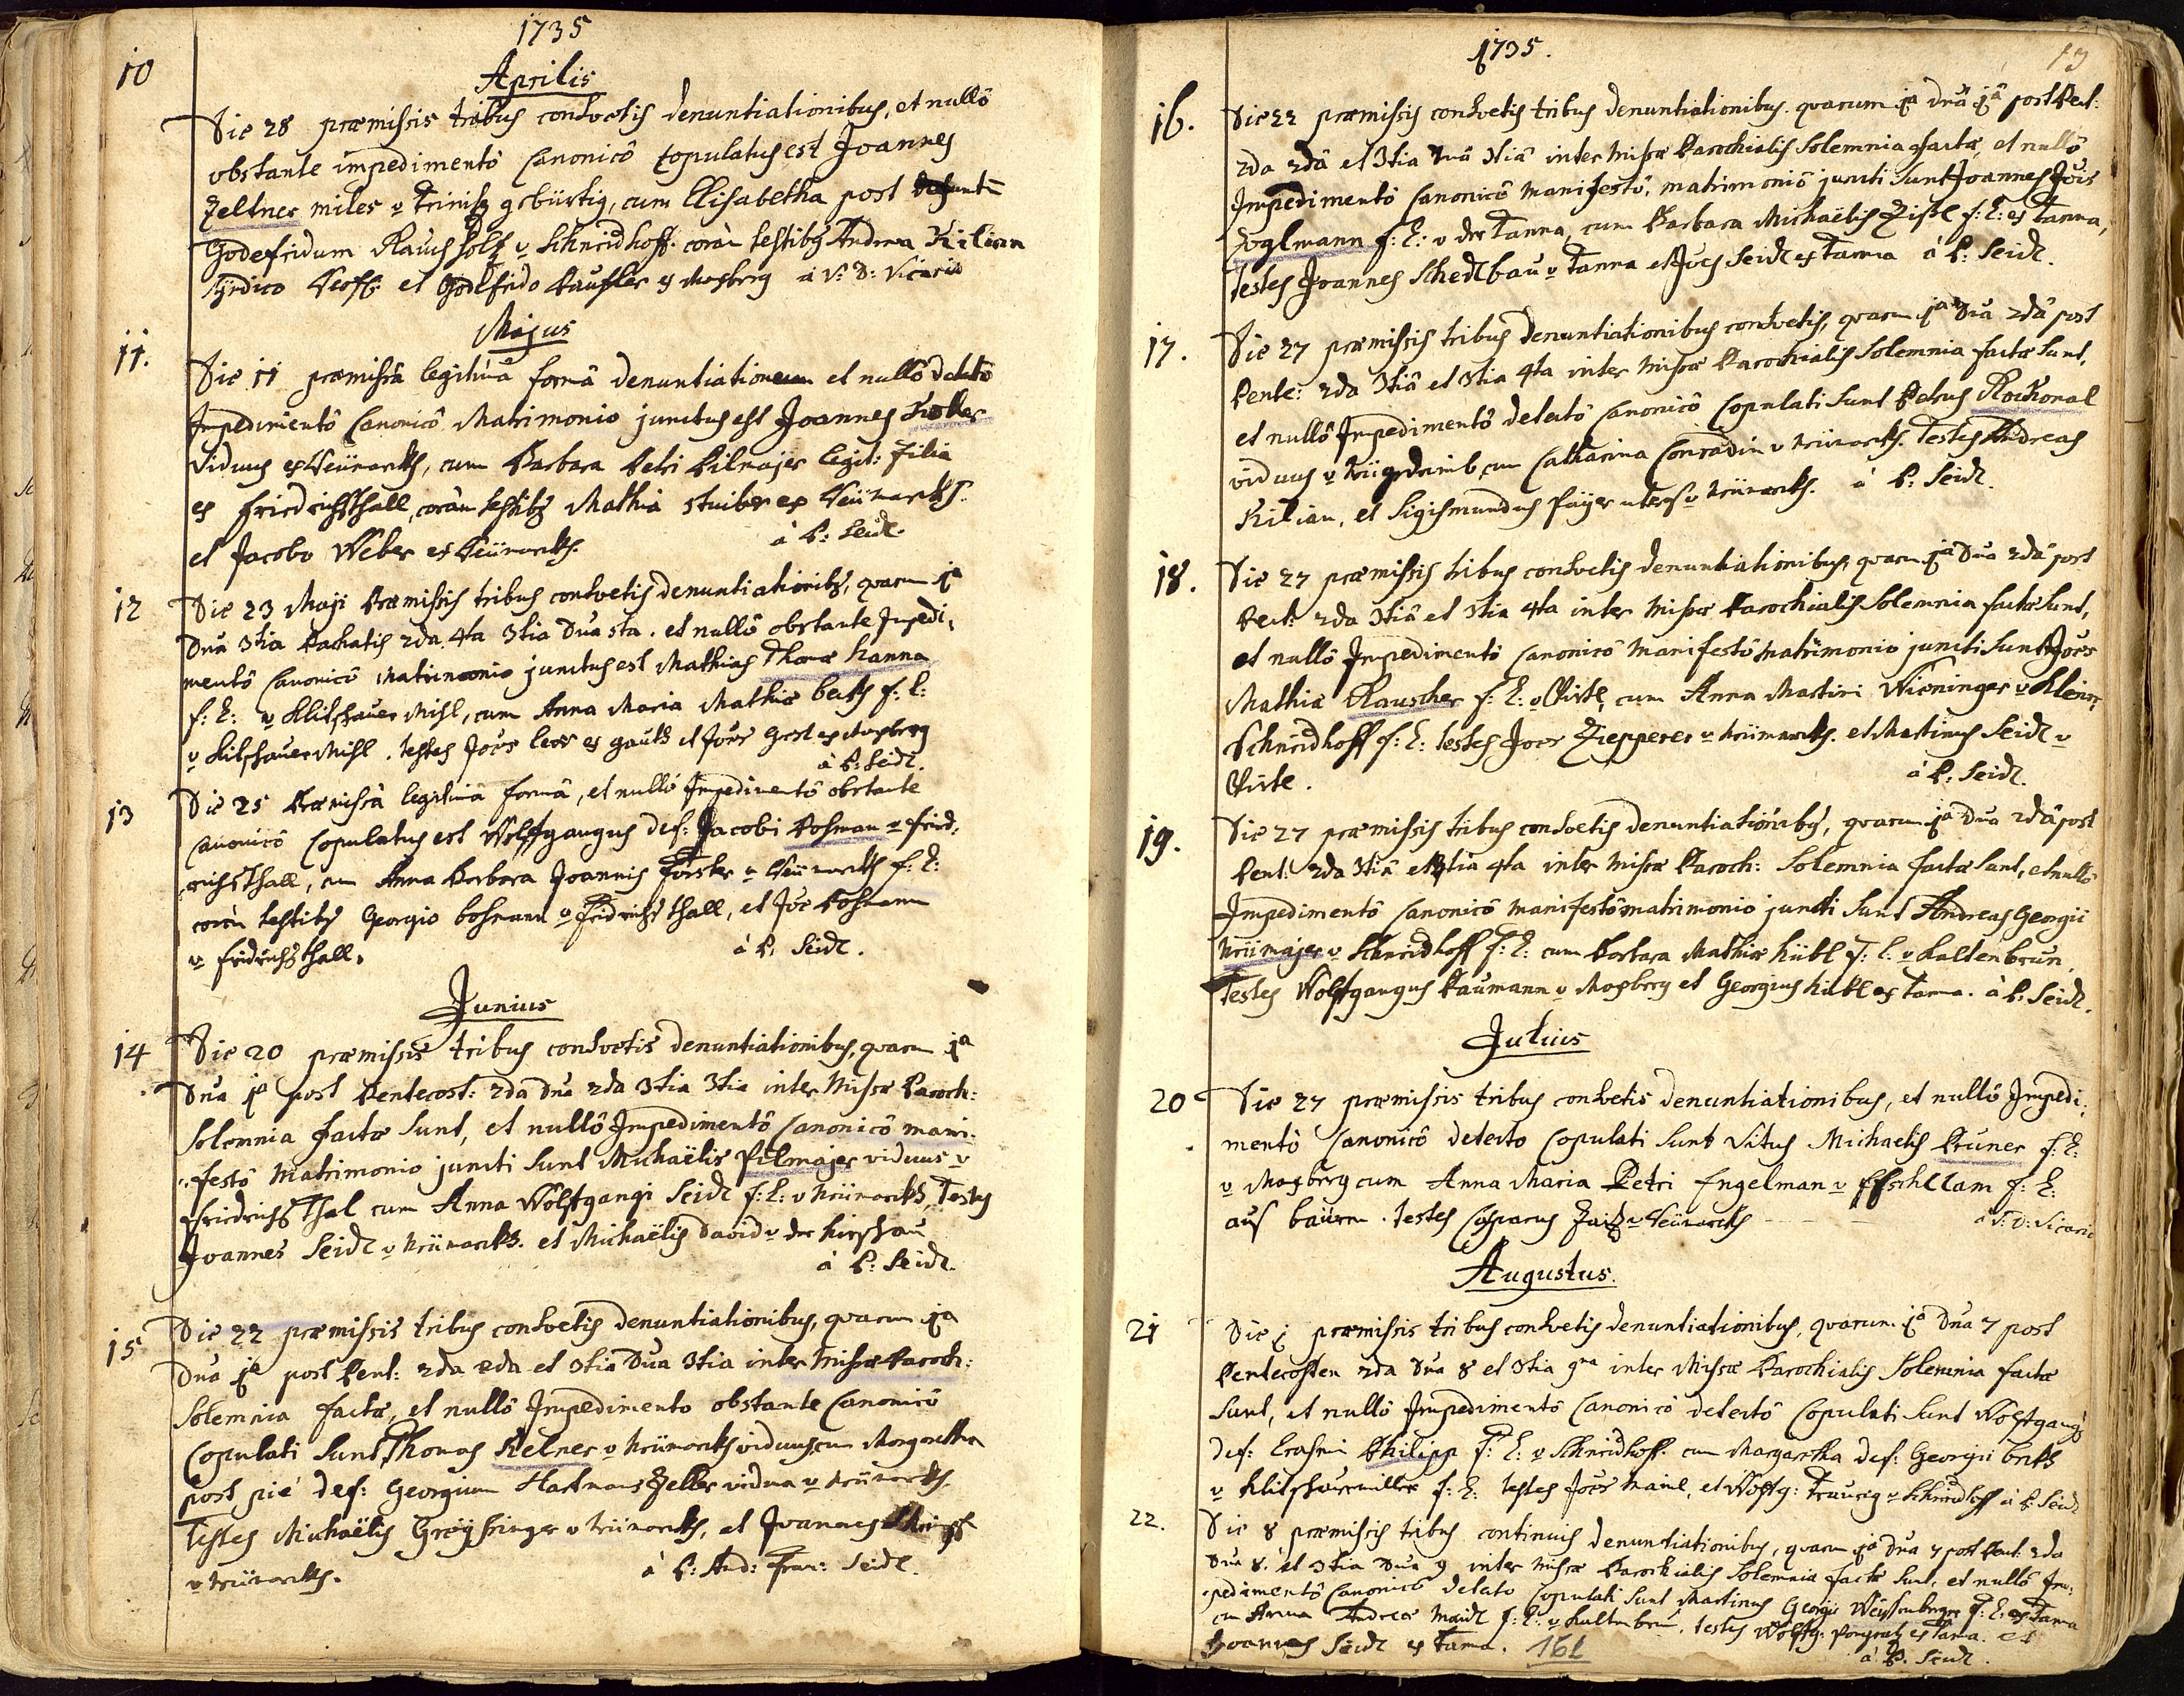 1735
Aprilis
10
Die 28 præmissis tribus consvetis denuntiationibus, et nullô
obstante impedimentô Canonicô copulatus est Joannes
Zeltner miles v Trinitz gebürtig, cum Elisabetha post
Godefridum v Schneidhoff. coràm testibq Andrea Kilian
Syndico et Godefrido Paufler ex Mosberg à V: D: Vicario
Majus
11.
Die 11 præmissâ legitimâ formâ denuntiationum et nullô detectô
Impedimentô Canonicô Matrimonio junctus est Joannes
viduus ex Neümarkh, cum Barbara Petri Pilmajer legit: filia
ex Friedrichsthall, coràm testibq Mathia Stuiber ex Neümarkh
et Jacobo Weber ex Neümarkh.
à P: Seidl.
12
Die 23 Maji Præmissis tribus consvetis denuntiationibq, quarum 1a
Dnâ 3tia Paschatis 2da 4ta 3tia Dnâ 5ta. et nullô obstante Impedi,
mentô Canonicô Matrimonio junctus est Mathias Thomæ Hanna
f: L: v Klitschauer Mihl, cum Anna Maria Mathiæ f: L:
v Klitschauer Mihl. testes Joes et Joes ex Mosberg
à P: Seidl.
13
Die 25 Præmissâ legitimâ formâ, et nullô Impedimentô obstante
Canonicô Copulatus est Wolffgangus def: Jacobi Posman v Fried,
richsthall, cum Anna Barbara Joannis Forster v Neümarkh f: L:
coràm testibq Georgio bosmann v Fridrichsthall, et Joe Posmann
v Fridrichsthall.
à P: Seidl.
Junius
14
Die 20 præmissis tribus consvetis denuntiationibus, quarum 1a
Dnâ 1a post Pentecost: 2da Dnâ 2da 3tia 3tia inter Missæ Paroch:
Solemnia factæ Sunt, et nullô Impedimentô Canonicô mani-
festô Matrimonio juncti Sunt Michaëlis Pilmajer viduus v
Friedrichsthal cum Anna Wolfgangi Seidl f: L: v Neümarkh, Testes
Joannes Seidl v Neümarkh. et Michaëlis David v der Hirschau
à P: Seidl.
15
Die 22 præmissis tribus consvetis denuntiationibus, quarum 1a
Dnâ 1a post Pent: 2da 2da et 3tia Dnâ 3tia inter Missæ Paroch:
Solemnia factæ, et nullô Impedimento obstante Canonicô
Copulati Sunt Thomas Kelner v Neümarkh viduus, cum Margaretha
post piè def: Georgium Hartmans Zeller vidua v Neümarkh.
testes Michaëlis v Neümarkh, et Joannes
v Neümarkh.
à P: And: Fran: Seidl.
1735.
13
16.
Die 22 præmissis consvetis tribus denuntiationibus. quarum 1a dnâ 1â post Pent:
2da 2dâ et 3tia Dnâ 3tiâ inter Missæ Parochialis Solemnia factæ, et nullô
Impedimentô Canonicô Manifestô, matrimoniô juncti Sunt Joannes Jois
Zoglmann f: L: v der Tanna, cum Barbara Michaëlis f: L: ex Tanna,
testes Joannes Schedlbau v Tanna et Joes Seidl ex Tanna à P: Seidl.
17.
Die 27 præmissis tribus denuntiationibus consvetis, quarum 1a Dnâ 2dâ post
Pente: 2da 3tiâ et 3tia 4ta inter Missæ Parochialis Solemnia factæ Sunt,
et nullô Impedimentô detectô Canonicô Copulati Sunt Petrus Rockonal
viduus v cum Catharina Conradin v Neümarkh. Testes Andreas
Kilian, et Sigismundus v Neümarkh. à P: Seidl.
18.
Die 27 præmissis tribus consvetis denuntiationibus, quarum 1a Dnâ 2dâ post
Pent: 2da 3tiâ et 3tia 4ta inter Missæ Parochialis Solemnia factæ Sunt,
et nullô Impedimentô Canonicô Manifestô matrimonio juncti Sunt Joes
Mathiæ Rauscher f: L: v cum Anna Martini Wieninger v Klein,
Schneidhoff f: L: testes Joes Ziepperer v Neümarkh. et Martinus Seidl v
à P: Seidl.
19.
Die 27 præmissis tribus consvetis denuntiationibq, quarum 1a Dnâ 2dâ post
Pent: 2da 3tiâ et 3tia 4ta inter Missæ Paroch: Solemnia factæ Sunt, et nullô
Impedimentô Canonicô manifestô matrimonio juncti Sunt Andreas Georgii
Neümajer v Schneidhoff f: L: cum Barbara Mathiæ Hübl f: L: v Kaltenbrun,
Testes Wolfgangus Paumann v Mosberg et Georgius Hübl ex Tanna. à P: Seidl.
Julius
20
Die 27 præmissis tribus consvetis denuntiationibus, et nullô Impedi,
mentô Canonicô detecto Copulati Sunt Vitus Michaelis Pruner f: L:
v Mosberg cum Anna Maria Petri Engelman v f: L:
aus baürn. testes Casparus v Neümarkh
à V: D: Vicario
Augustus.
21
Die 1 præmissis tribus consvetis denuntiationibus, quarum 1a Dnâ 7 post
Pentecosten 2da Dnâ 8 et 3tia 9na inter Missæ Parochialis Solemnia factæ
Sunt, et nullô Impedimentô Canonicô detectô Copulati Sunt Wolfgangq
def: Erasmi Philipp f: L: v Schneidhoff. cum Margaretha def: Georgii
v f: L: testes Joes et Wolffg: Traurig v Schneidhoff à P Seidl
22.
Die 8 præmissis tribus continuis denuntiationibus, quarum 1a Dnâ 7 post Pent: 2da
Dnâ 8. et 3tia Dnâ 9 inter Missæ Parochialis Solemnia factæ Sunt, et nullô Im,
pedimentô Canonicô detecto Copulati Sunt Martinus Georgii Weissenberger f: L: ex Tanna
cum Anna Andreæ f: L: v Kaltenbrun. testes Wolffg: Pongratz ex Tanna. et
Joannes Seidl ex Tanna.
à P. Seidl.